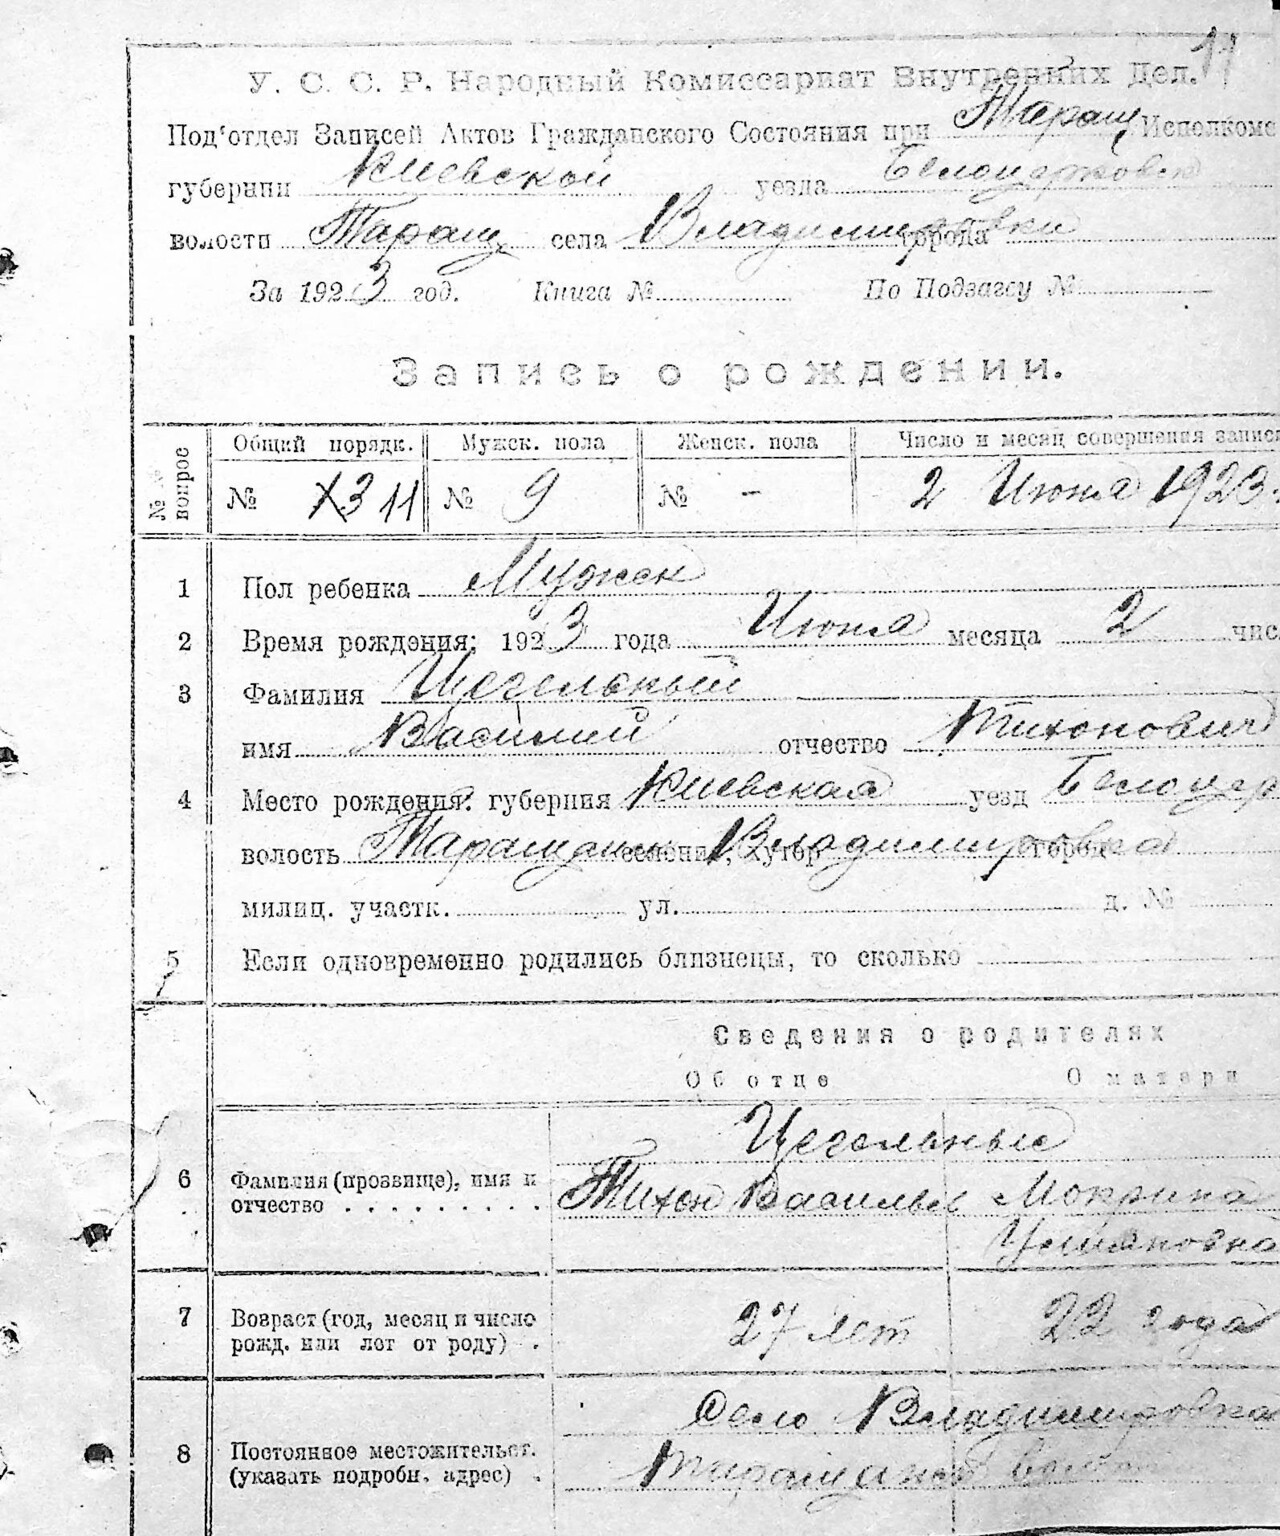 11
У. С. С. Р. Народный Комиссариат Внутренних Дел.
Под'отдел Записей Актов Гражданского Состояния при Таращ. Исполкоме
губернии Киевской уезда Белоцерковск
волости Таращ села Владимировки города
За 1923 год. Книга № По Подзагсу №
Запись о рождении.
№№ вопрос Общий порядк. Мужск. пола Женск. пола Число и месяц совершения записи
№ 11 № 9 № - 2 Июня 1923 г.
1 Пол ребенка Мужск
2 Время рождения: 1923 года Июня месяца 2 чис
3 Фамилия Цегельный
имя Василий отчество Тихонович
4 Место рождения: губерния Киевская уезд Белоцер
волость Таращанск селение, хутор Владимировка город
милиц. участк. ул. д. №
5 Если одновременно родились близнецы, то сколько
Сведения о родителях
Об отце О матери
Цегельные
6 Фамилия (прозвище), имя и
отчество Тихон Васильев Мокрина
Ульяновна
7 Возраст (год, месяц и число
рожд. или лет от роду) 27 лет 22 года
Село Владимировка
8 Постоянное местожительст.
(указать подробн. адрес) Таращанск